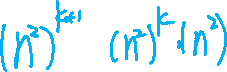 (n²)^{k+1} (n²)^k · (n²)